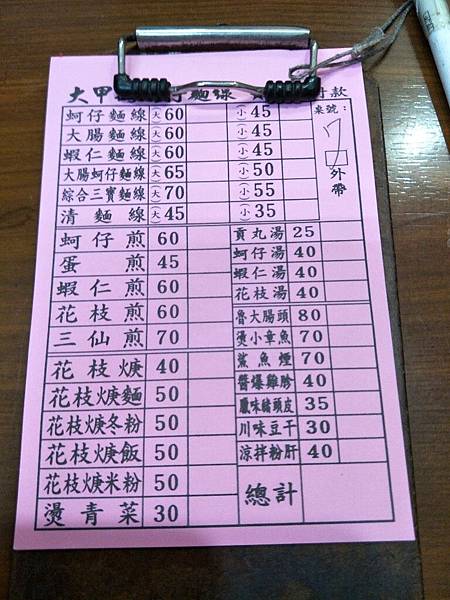 大甲 麵線 付款
蚵仔麵線 (大) 60 (小) 45
大腸麵線 (大) 60 (小) 45
蝦仁麵線 (大) 60 (小) 45
大腸蚵仔麵線 (大) 65 (小) 50
綜合三寶麵線 (大) 70 (小) 55
清麵線 (大) 45 (小) 35
桌號：
7
外帶
蚵仔煎 60
蛋煎 45
蝦仁煎 60
花枝煎 60
三仙煎 70
花枝焿 40
花枝焿麵 50
花枝焿冬粉 50
花枝焿飯 50
花枝焿米粉 50
燙青菜 30
貢丸湯 25
蚵仔湯 40
蝦仁湯 40
花枝湯 40
魯大腸頭 80
燙小章魚 70
鯊魚煙 70
醬爆雞胗 40
臘味豬頭皮 35
川味豆干 30
涼拌粉肝 40
總計